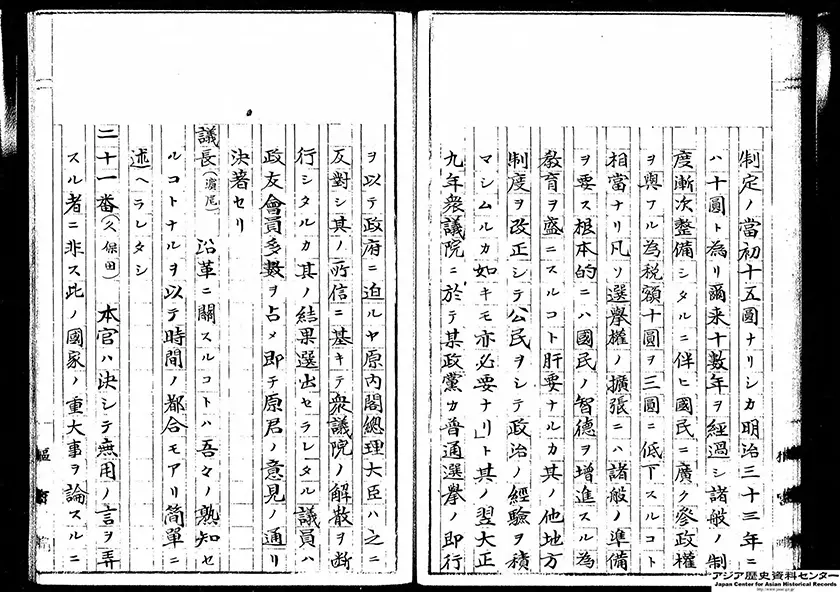 制定ノ當初十五圓ナリシカ明治三十三年ニ
ハ十圓ト為リ爾来十數年ヲ經過シ諸般ノ制
度漸次整備シタルニ伴ヒ國民ニ廣ク參政權
ヲ與フル為税額十圓ヲ三圓ニ低下スルコト
相當ナリ凡ソ選擧權ノ擴張ニハ諸般ノ準備
ヲ要ス根本的ニハ國民ノ智德ヲ増進スル為
教育ヲ盛ニスルコト肝要ナルカ其ノ他地方
制度ヲ改正シテ公民ヲシテ政治ノ經驗ヲ積
マシムルカ如キモ亦必要ナリ」ト其ノ翌大正
九年衆議院ニ於テ某政黨カ普通選擧ノ即行
ヲ以テ政府ニ迫ルヤ原内閣總理大臣ハ之ニ
反對シ其ノ所信ニ基キテ衆議院ノ解散ヲ断
行シタルカ其ノ結果選出セラレタル議員ハ
政友會員多數ヲ占メ即チ原君ノ意見ノ通リ
決著セリ
議長(濱尾) 沿革ニ關スルコトハ吾々ノ熟知セ
ルコトナルヲ以テ時間ノ都合モアリ簡單ニ
述ヘラレタシ
二十一番(久保田) 本官ハ決シテ無用ノ言ヲ弄
スル者ニ非ス此ノ國家ノ重大事ヲ論スルニ
アジア歴史資料センター
Japan Center for Asian Historical Records
http://www.jacar.go.jp